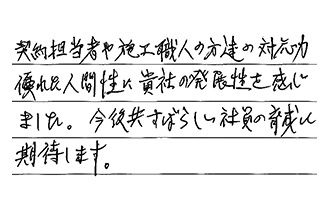 契約担当者や施工職人の方達の対応力
優れた人間性に貴社の発展性を感じ
ました。今後共すばらしい社員の育成に
期待します。